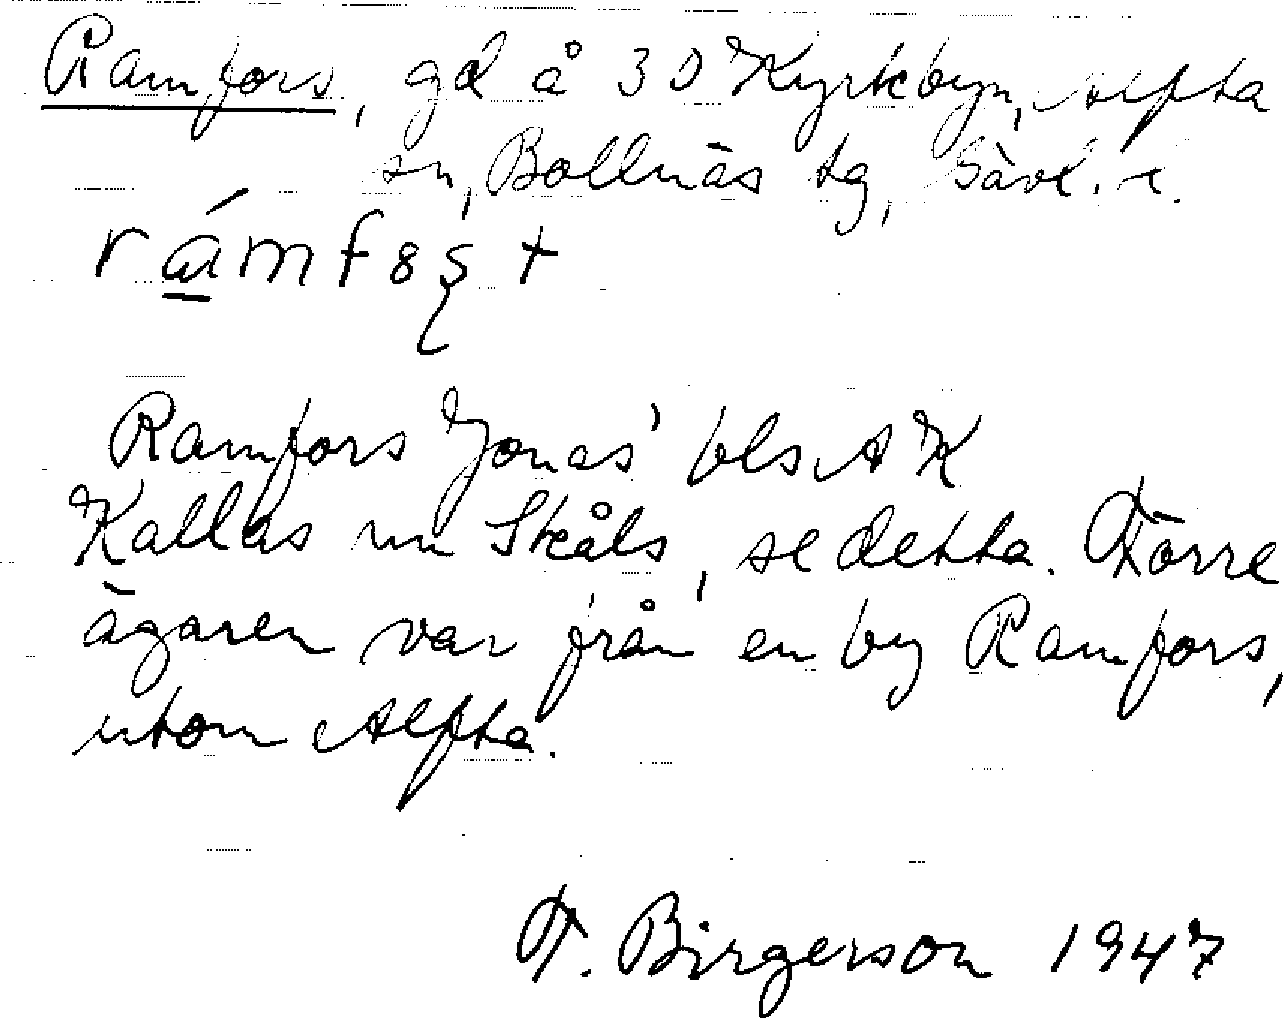 Ramfors, gd å 30 Kyrkbyn, Alfta
sn, Bollnäs tg, Gävl. l.
Ramfors Jonas' bls AK
Kallas nu Skåls, se detta. Förre
ägaren var från en by Ramfors,
utom Alfta.
F. Birgerson 1947